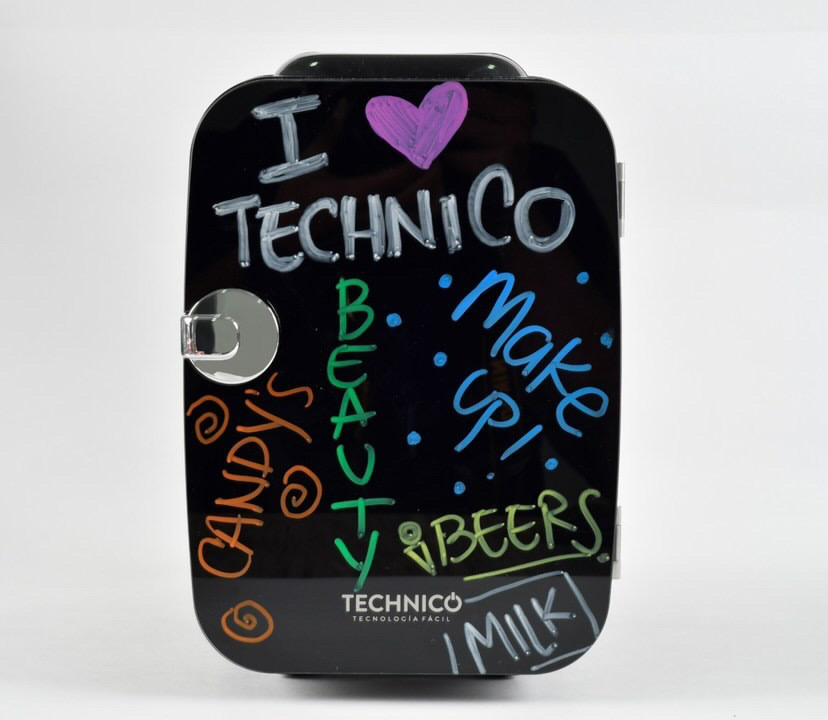 I ♥
TECHNICO
BEAUTY
Make
UP!
CANDY'S
¡BEERS
TECHNICO
TECNOLOGÍA FÁCIL
MILK